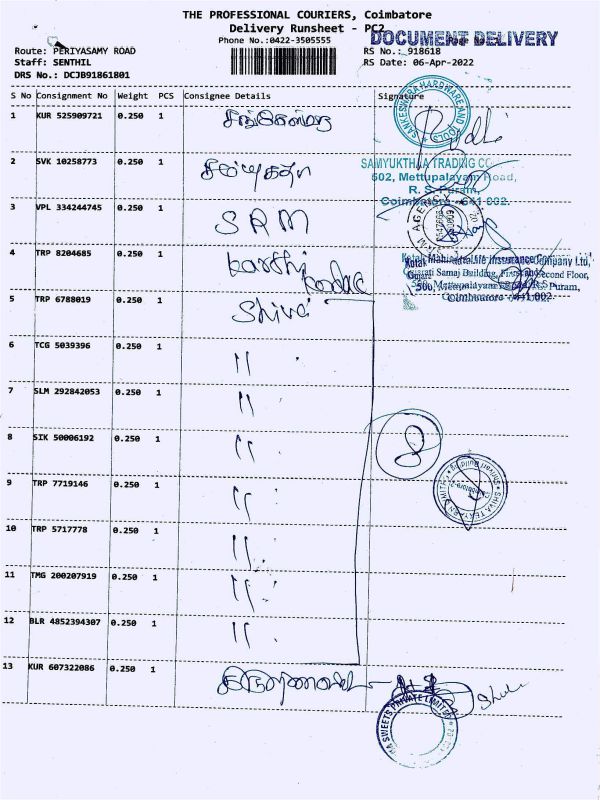 THE PROFESSIONAL COURIERS, Coimbatore
Delivery Runsheet - PC2
DOCUMENT DELIVERY
Phone No.:0422-3505555
Route: PERIYASAMY ROAD
RS No.: 918618
Staff: SENTHIL
RS Date: 06-Apr-2022
DRS No.: DCJB91861801
S No Consignment No Weight PCS Consignee Details Signature
1 KUR 525909721 0.250 1
SANKESWARA HARDWARE AND TOOLS
2 SVK 10258773 0.250 1
SAMYUKTHAA TRADING CO
502, Mettupalayam Road,
R. S. Puram,
Coimbatore - 641 002.
3 VPL 334244745 0.250 1 SRM
SRM AGENCY
4 TRP 8204685 0.250 1 karthi
Kotak Mahindra Life Insurance Company Ltd,
Gujarati Samaj Building, First and Second Floor,
Puram,
Coimbatore - 641 002
5 TRP 6788019 0.250 1 Shiva
6 TCG 5039396 0.250 1 "
7 SLM 292842053 0.250 1 "
8 SIK 50006192 0.250 1 "
9 TRP 7719146 0.250 1 "
SHIVA TEXYARN LIMITED
10 TRP 5717778 0.250 1 "
11 TMG 200207919 0.250 1 "
12 BLR 4852394307 0.250 1 "
13 KUR 607322086 0.250 1
SWEETS PRIVATE LIMITED